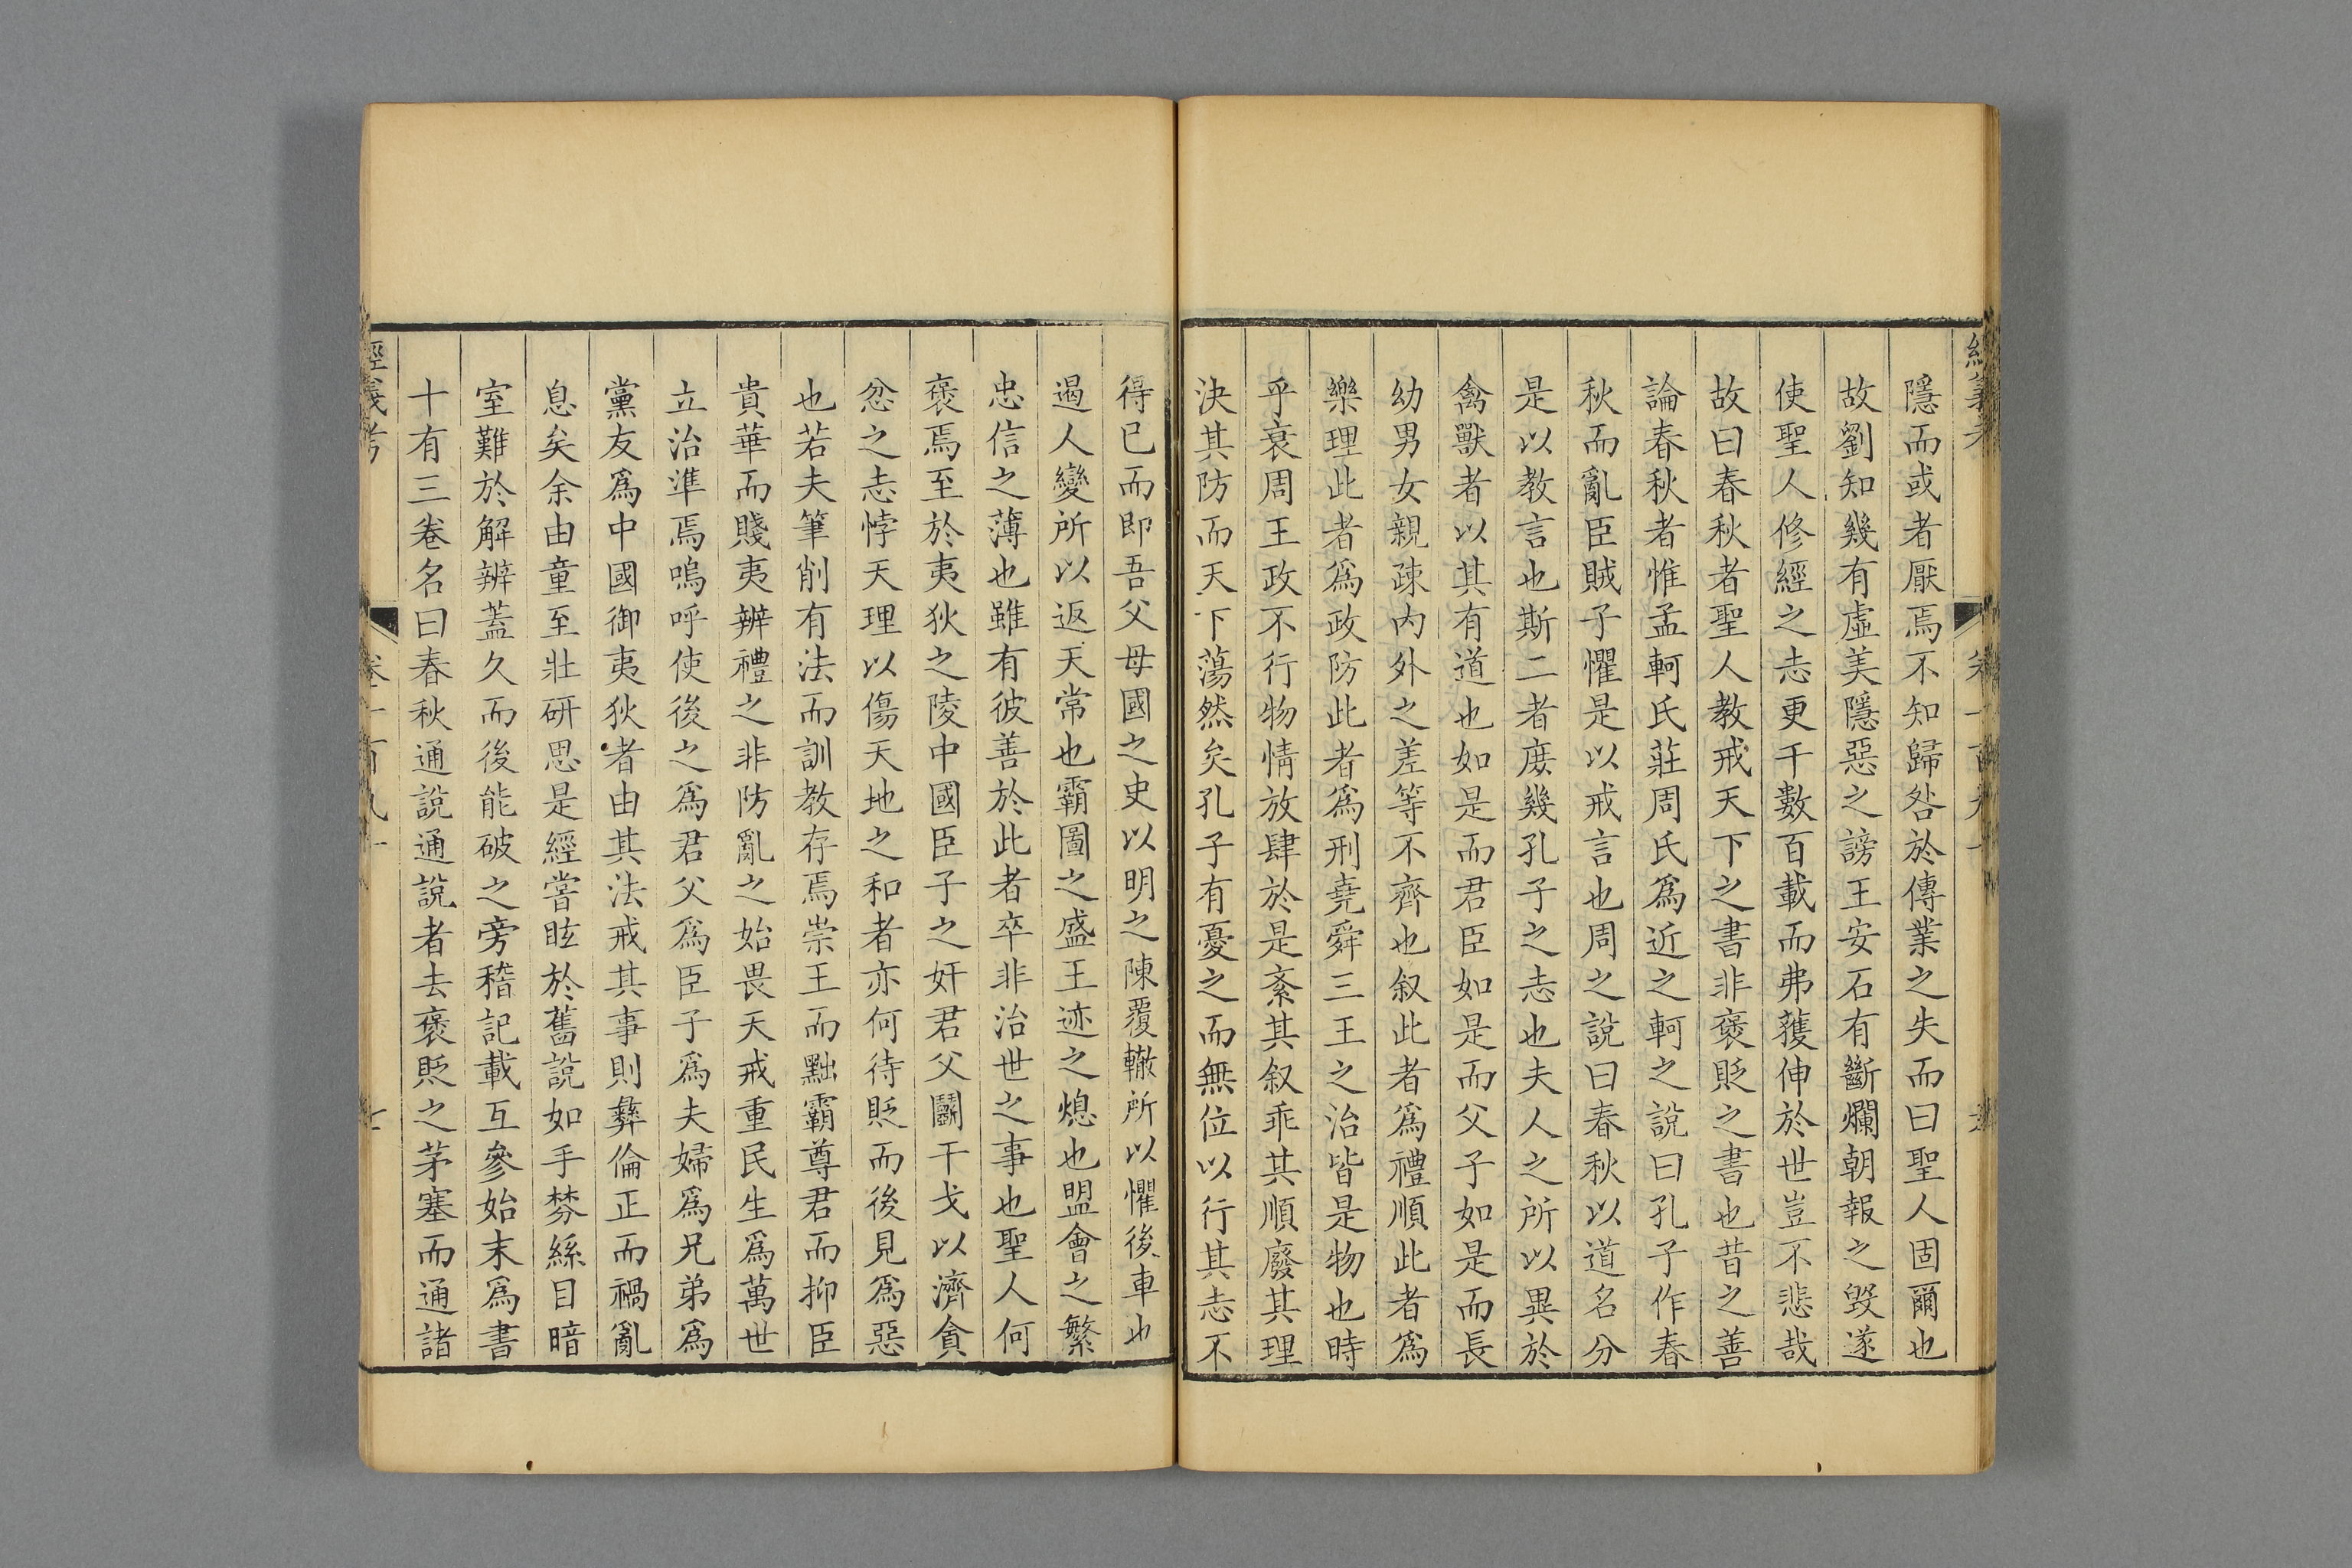 隱而或者厭焉不知歸咎於傳業之失而曰聖人固爾也
故劉知幾有虛美隱惡之謗王安石有斷爛朝報之毀遂
使聖人修經之志更千數百載而弗獲伸於世豈不悲哉
故曰春秋者聖人教戒天下之書非褒貶之書也昔之善
論春秋者惟孟軻氏莊周氏爲近之軻之說曰孔子作春
秋而亂臣賊子懼是以戒言也周之說曰春秋以道名分
是以教言也斯二者庻幾孔子之志也夫人之所以異於
禽獸者以其有道也如是而君臣如是而父子如是而長
幼男女親疎内外之差等不齊也叙此者爲禮順此者爲
樂理此者爲政防此者爲刑堯舜三王之治皆是物也時
乎衰周王政不行物情放肆於是紊其叙乖其順廢其理
決其防而天下蕩然矣孔子有憂之而無位以行其志不
得已而即吾父母國之史以明之陳覆轍所以懼後車也
遏人變所以返天常也霸圖之盛王迹之熄也盟會之繁
忠信之薄也雖有彼善於此者卒非治世之事也聖人何
褒焉至於夷狄之陵中國臣子之奸君父鬭干戈以濟貪
忿之志悖天理以傷天地之和者亦何待貶而後見爲惡
也若夫筆削有法而訓教存焉崇王而黜霸尊君而抑臣
貴華而賤夷辨禮之非防亂之始畏天戒重民生爲萬世
立治準焉嗚呼使後之爲君父爲臣子爲夫婦爲兄弟爲
黨友爲中國御夷狄者由其法戒其事則彝倫正而禍亂
息矣余由童至壯研思是經嘗眩於舊說如手棼絲目暗
室難於解辨蓋久而後能破之旁稽記載互參始末爲書
十有三卷名曰春秋通說通說者去褒貶之茅塞而通諸
經義考